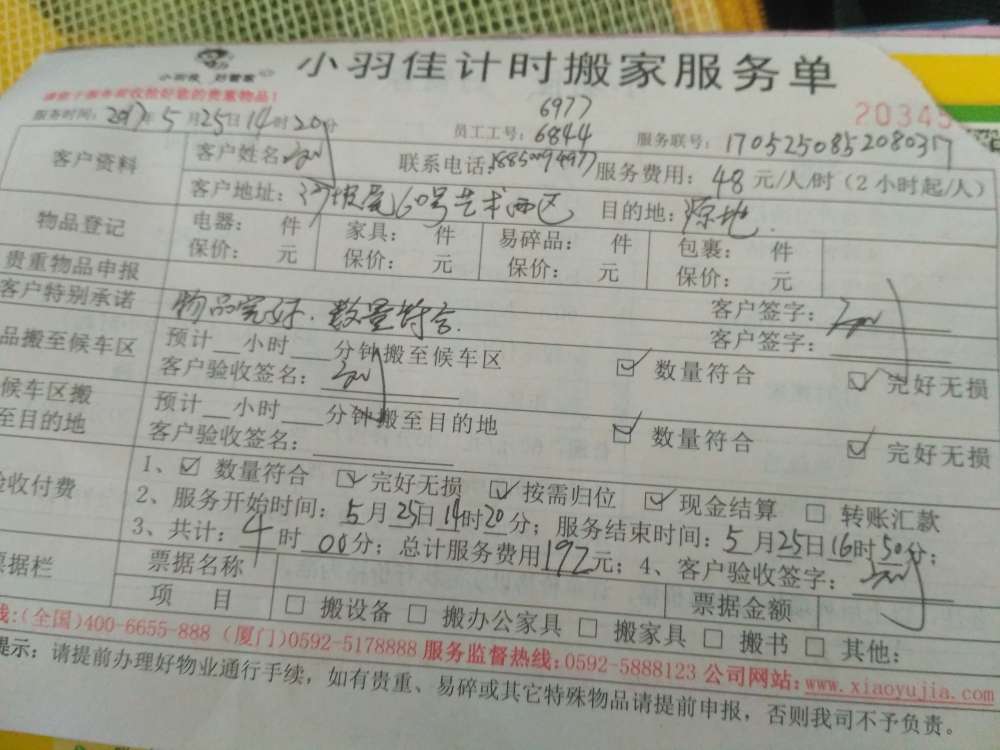 小羽佳计时搬家服务单
小羽佳 好管家
20345
服务时间:2017年5月25日14时20分
员工工号: 6977 6844
服务联号: 1705250852080317
客户资料
客户姓名
联系电话:
服务费用: 48元/人/时(2小时起/人)
客户地址: 沙坡尾60号艺术西区 目的地: 原地.
物品登记
电器: 件 家具: 件 易碎品: 件 包裹: 件
保价: 元 保价: 元 保价: 元 保价: 元
贵重物品申报
客户签字:
客户特别承诺 物品完好.数量符合.
客户签字:
品搬至候车区 预计__小时___分钟搬至候车区 ☑ 数量符合 ☑ 完好无损
客户验收签名:
候车区搬
至目的地
预计__小时___分钟搬至目的地 ☑ 数量符合 ☑ 完好无损
客户验收签名:
验收付费
1、☑ 数量符合 ☑ 完好无损 ☑ 按需归位 ☑ 现金结算 □ 转账汇款
2、服务开始时间: 5月25日14时20分; 服务结束时间: 5月25日16时50分;
3、共计: 4时00分; 总计服务费用192元; 4、客户验收签字:
票据栏
票据名称
票据金额
项 目 □ 搬设备 □ 搬办公家具 □ 搬家具 □ 搬书 □ 其他:
线:(全国)400-6655-888 (厦门)0592-5178888 服务监督热线:0592-5888123 公司网站:www.xiaoyujia.com
提示: 请提前办理好物业通行手续,如有贵重、易碎或其它特殊物品请提前申报,否则我司不予负责。